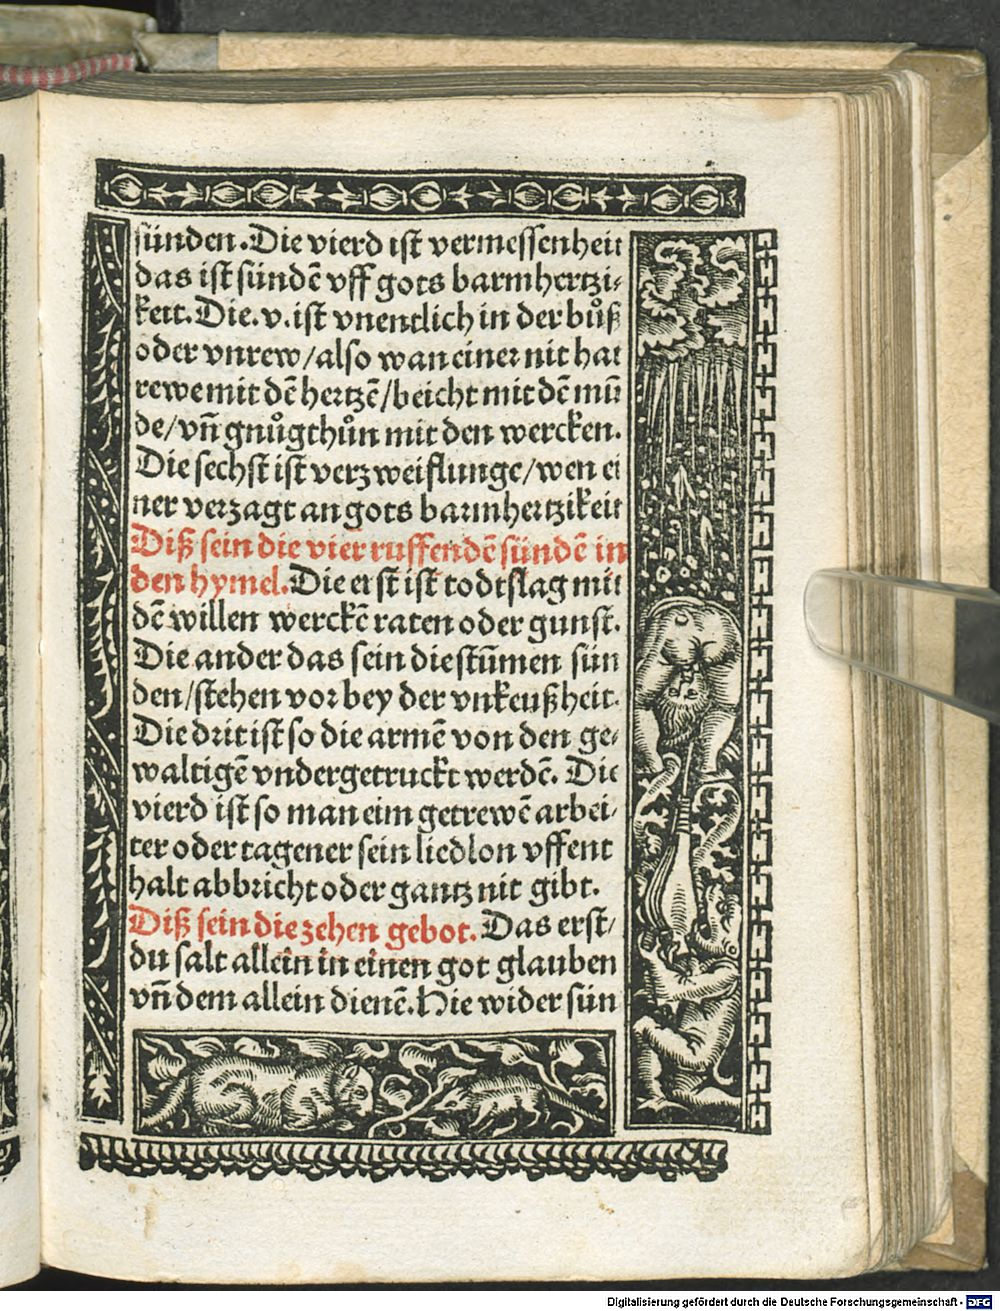 sünden. Die vierd ist vermessenheit
das ist sündē vff gots barmhertzi-
keit. Die. v. ist vnentlich in der bůß
oder vnrew/also wan einer nit hat
rewe mit dē hertzē/beicht mit dē mū
de/vñ gnůgthůn mit den wercken.
Die sechst ist verzweiflunge/wen ei
ner verzagt an gots barmhertzikeit
Diß sein die vier ruffendē sündē in
den hymel. Die erst ist todtslag mit
dē willen werckē raten oder gunst.
Die ander das sein die stūmen sün
den/stehen vor bey der vnkeußheit.
Die drit ist so die armē von den ge-
waltigē vndergetruckt werdē. Die
vierd ist so man eim getrewē arbei-
ter oder tagener sein liedlon vffent
halt abbricht oder gantz nit gibt.
Diß sein die zehen gebot. Das erst/
du salt allein in einen got glauben
vñ dem allein dienē. Hie wider sün
Digitalisierung gefördert durch die Deutsche Forschungsgemeinschaft - DFG